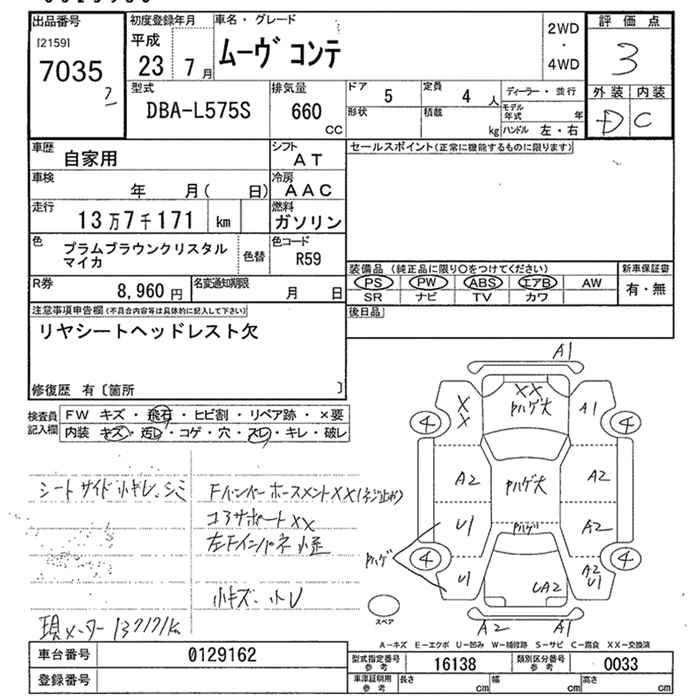 出品番号
[2159]
7035
初度登録年月
平成
23 7月
車名・グレード
ムーヴ コンテ
2WD
・
4WD
評価点
3
外装 内装
D C
型式
DBA-L575S
排気量
660
CC
ドア 5
定員 4人
形状
積載 kg
ディーラー・並行
モデル年式 年
ハンドル 左・右
車歴 自家用
シフト AT
車検 年 月( 日)
冷房 AAC
走行 13万7千171 km
燃料 ガソリン
色 プラムブラウンクリスタル
マイカ
色替
色コード R59
R券 8,960円
名変通知期限 月 日
セールスポイント(正常に機能するものに限ります)
装備品 (純正品に限り○をつけてください)
PS PW ABS エアB AW
SR ナビ TV カワ
新車保証書
有・無
後日品
注意事項申告欄(不具合内容等は具体的に記入して下さい)
リヤシートヘッドレスト欠
修復歴 有〔箇所 〕
検査員記入欄
FW キズ・飛石・ヒビ割・リペア跡・×要
内装 キズ・汚レ・コゲ・穴・スレ・キレ・破レ
シートサイド小キレ、シミ
Fバンパーホースメント××(ネジ止め)
コアサポート××
左Fインパネ 小歪
小キズ、小U
現メーター137171K
A1
××
Pハゲ大
×
×
A1
4
4
A2
Pハゲ大
A2
U1
Pハゲ
A2
Pハゲ
4
4
U1
UA2
A2
U1
A2
A1
スペア
A-キズ E-エクボ U-凹み W-補修跡 S-サビ C-腐食 XX-交換済
車台番号 0129162
登録番号
型式指定番号 参考 16138
類別区分番号 参考 0033
車庫証明用 参考 長さ cm 幅 cm 高さ cm